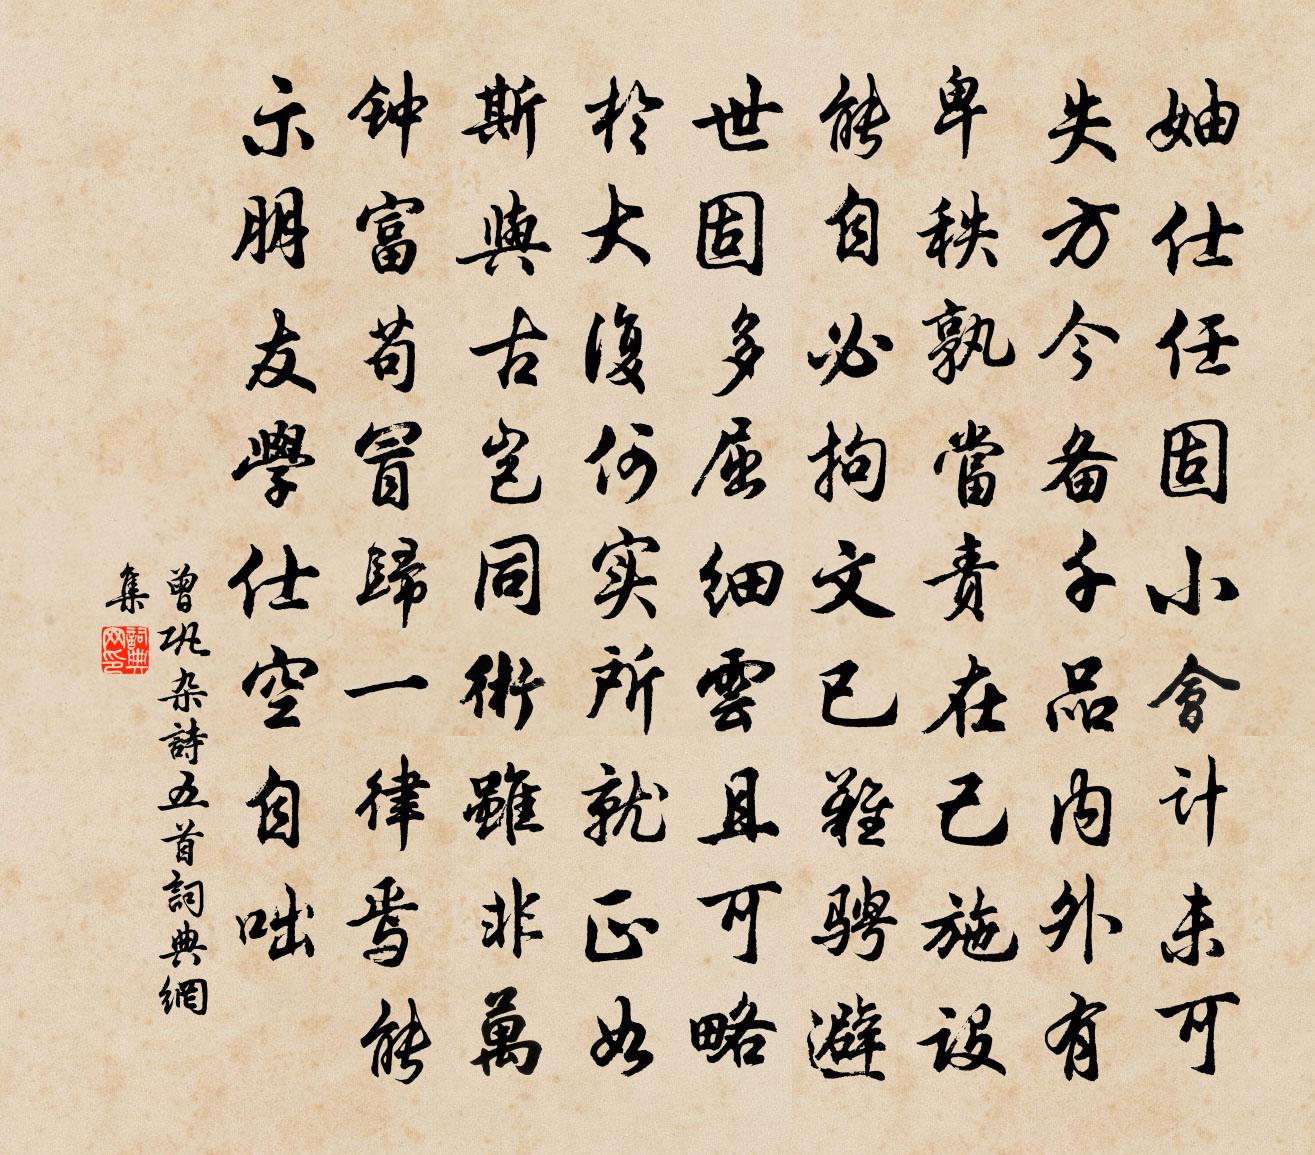 妯仕任固小會计未可
失方今备千品内外有
卑秩孰當责在己施設
能自必拘文已難騁避
世固多屈细雲且可略
於大復何实所就正如
斯與古岂同術雖非萬
钟富苟冒歸一律焉能
示朋友學仕空自咄
曾巩杂詩五首詞典網
集
詞典
网印